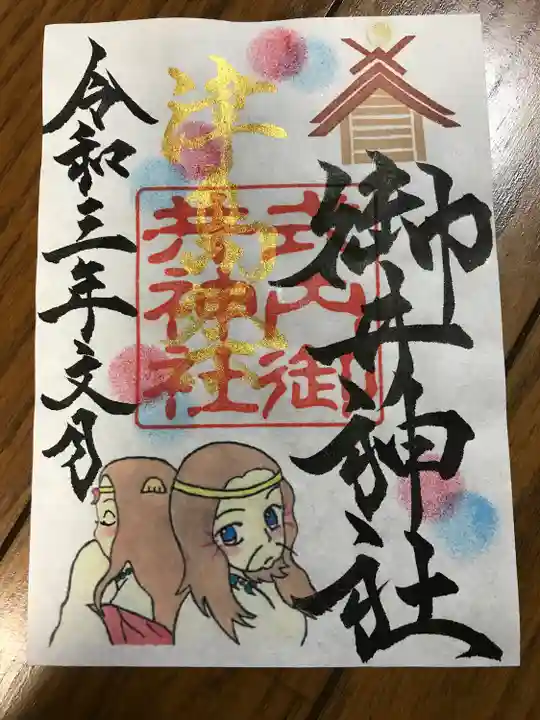 御井神社
内御
井神社
令和三年文月